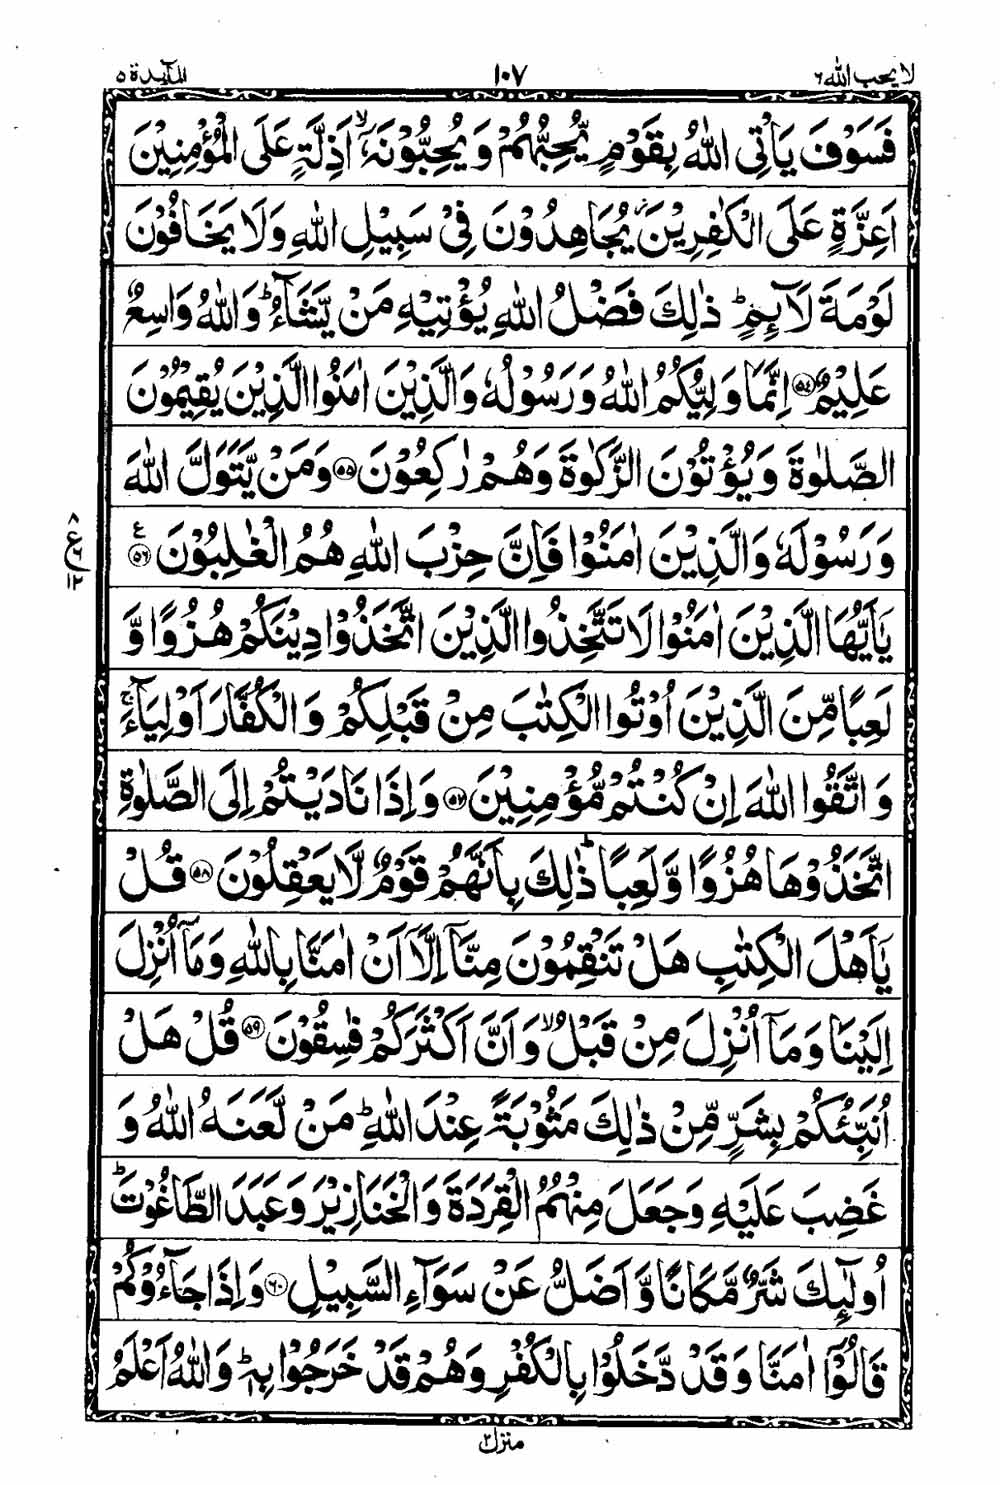 لا يحب الله ٦ ١٠٧ المآيدة ٥
فَسَوْفَ يَاْتِى اللّٰهُ بِقَوْمٍ يُّحِبُّهُمْ وَ يُحِبُّوْنَهٗۤ ۙ اَذِلَّةٍ عَلَى الْمُؤْمِنِيْنَ
اَعِزَّةٍ عَلَى الْكٰفِرِيْنَ ۫ يُجَاهِدُوْنَ فِىْ سَبِيْلِ اللّٰهِ وَلَا يَخَافُوْنَ
لَوْمَةَ لَآئِمٍ ؕ ذٰلِكَ فَضْلُ اللّٰهِ يُؤْتِيْهِ مَنْ يَّشَآءُ ؕ وَاللّٰهُ وَاسِعٌ
عَلِيْمٌ ۝۵۴ اِنَّمَا وَلِيُّكُمُ اللّٰهُ وَ رَسُوْلُهٗ وَالَّذِيْنَ اٰمَنُوا الَّذِيْنَ يُقِيْمُوْنَ
الصَّلٰوةَ وَيُؤْتُوْنَ الزَّكٰوةَ وَهُمْ رٰكِعُوْنَ ۝۵۵ وَمَنْ يَّتَوَلَّ اللّٰهَ
وَ رَسُوْلَهٗ وَالَّذِيْنَ اٰمَنُوْا فَاِنَّ حِزْبَ اللّٰهِ هُمُ الْغٰلِبُوْنَ ۝۵۶ ع
٨ ع ٦ ١٢
يٰۤاَيُّهَا الَّذِيْنَ اٰمَنُوْا لَا تَتَّخِذُوا الَّذِيْنَ اتَّخَذُوْا دِيْنَكُمْ هُزُوًا وَّ
لَعِبًا مِّنَ الَّذِيْنَ اُوْتُوا الْكِتٰبَ مِنْ قَبْلِكُمْ وَ الْكُفَّارَ اَوْلِيَآءَ ۚ
وَ اتَّقُوا اللّٰهَ اِنْ كُنْتُمْ مُّؤْمِنِيْنَ ۝۵۷ وَ اِذَا نَادَيْتُمْ اِلَى الصَّلٰوةِ
اتَّخَذُوْهَا هُزُوًا وَّ لَعِبًا ؕ ذٰلِكَ بِاَنَّهُمْ قَوْمٌ لَّا يَعْقِلُوْنَ ۝۵۸ قُلْ
يٰۤاَهْلَ الْكِتٰبِ هَلْ تَنْقِمُوْنَ مِنَّاۤ اِلَّاۤ اَنْ اٰمَنَّا بِاللّٰهِ وَمَاۤ اُنْزِلَ
اِلَيْنَا وَ مَاۤ اُنْزِلَ مِنْ قَبْلُ ۙ وَ اَنَّ اَكْثَرَكُمْ فٰسِقُوْنَ ۝۵۹ قُلْ هَلْ
اُنَبِّئُكُمْ بِشَرٍّ مِّنْ ذٰلِكَ مَثُوْبَةً عِنْدَ اللّٰهِ ؕ مَنْ لَّعَنَهُ اللّٰهُ وَ
غَضِبَ عَلَيْهِ وَجَعَلَ مِنْهُمُ الْقِرَدَةَ وَ الْخَنَازِيْرَ وَ عَبَدَ الطَّاغُوْتَ ؕ
اُولٰٓئِكَ شَرٌّ مَّكَانًا وَّ اَضَلُّ عَنْ سَوَآءِ السَّبِيْلِ ۝۶۰ وَ اِذَا جَآءُوْكُمْ
قَالُوْۤا اٰمَنَّا وَ قَدْ دَّخَلُوْا بِالْكُفْرِ وَ هُمْ قَدْ خَرَجُوْا بِهٖ ؕ وَ اللّٰهُ اَعْلَمُ
منزل ٢